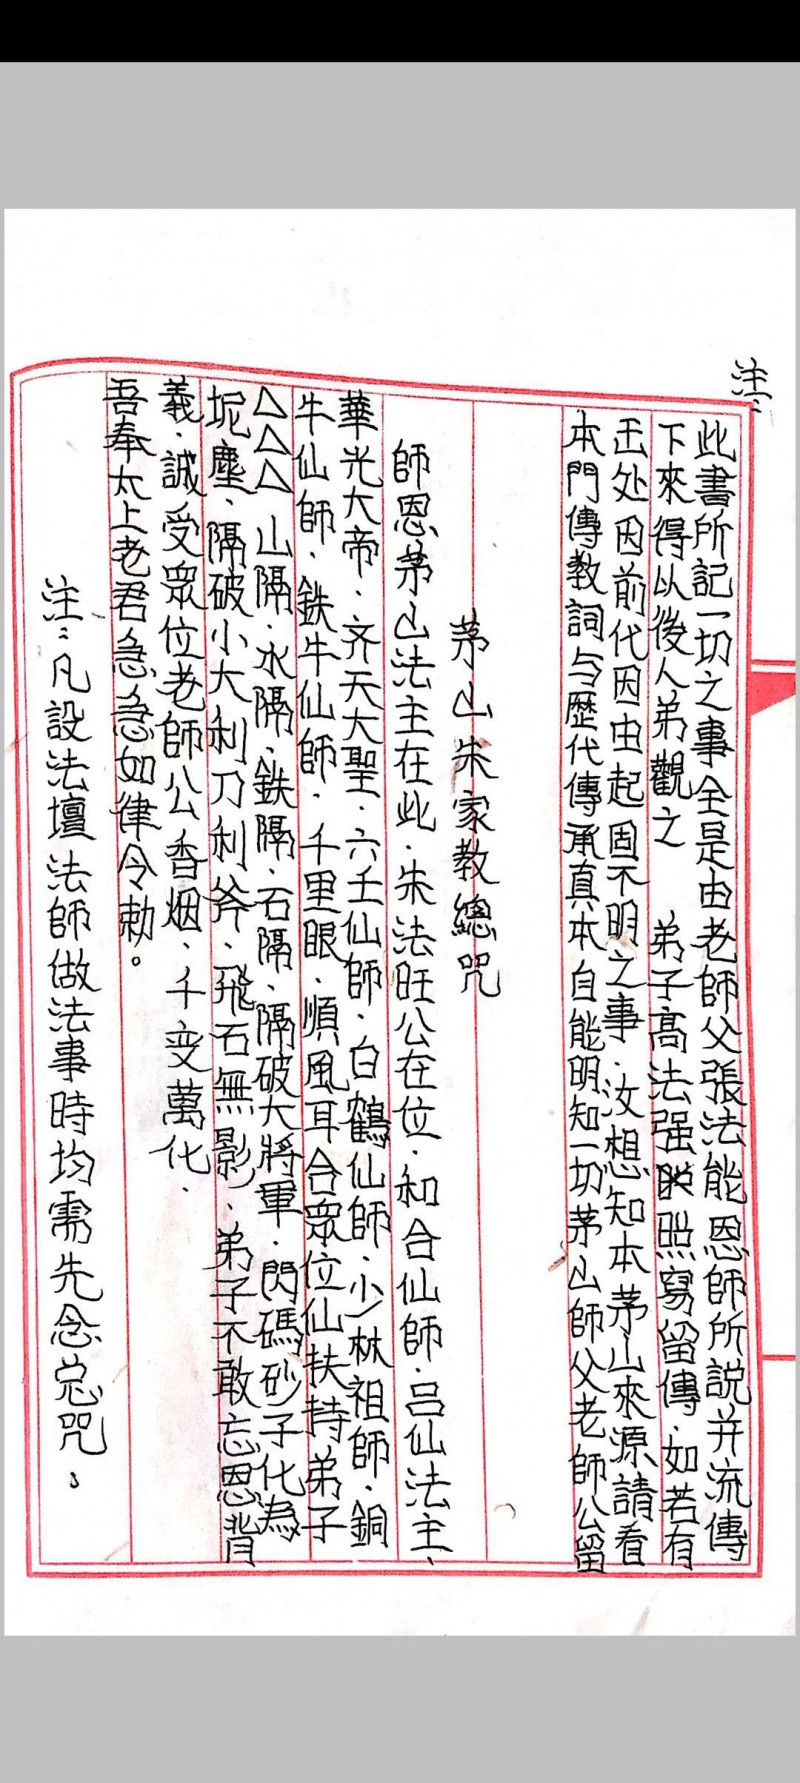 注：
此書所記一切之事全是由老師父張法能恩師所説并流傳
下來得以後人弟觀之　弟子高法强映照寫留傳．如若有
㐀处因前代因由起固不明之事．汝想知本茅山來源請看
本門傳教詞与歷代傳承真本自能明知一切茅山師父老師公留
茅山朱家教總咒
師恩茅山法主在此．朱法旺公在位．和合仙師．吕仙法主、
華光大帝．齐天大聖．六壬仙師．白鶴仙師．少林祖師．銅
牛仙師．鉄牛仙師．千里眼．順風耳合眾位仙扶持弟子
△△△　山隔．水隔．鉄隔．石隔．隔破大將軍．閃碼砂子化為
坭塵．隔破小大利刀利斧．飛石無影．弟子不敢忘恩背
義．誠受眾位老師公香烟．千变萬化．
吾奉太上老君急急如律令勅。
注：凡設法壇法師做法事時均需先念总咒、